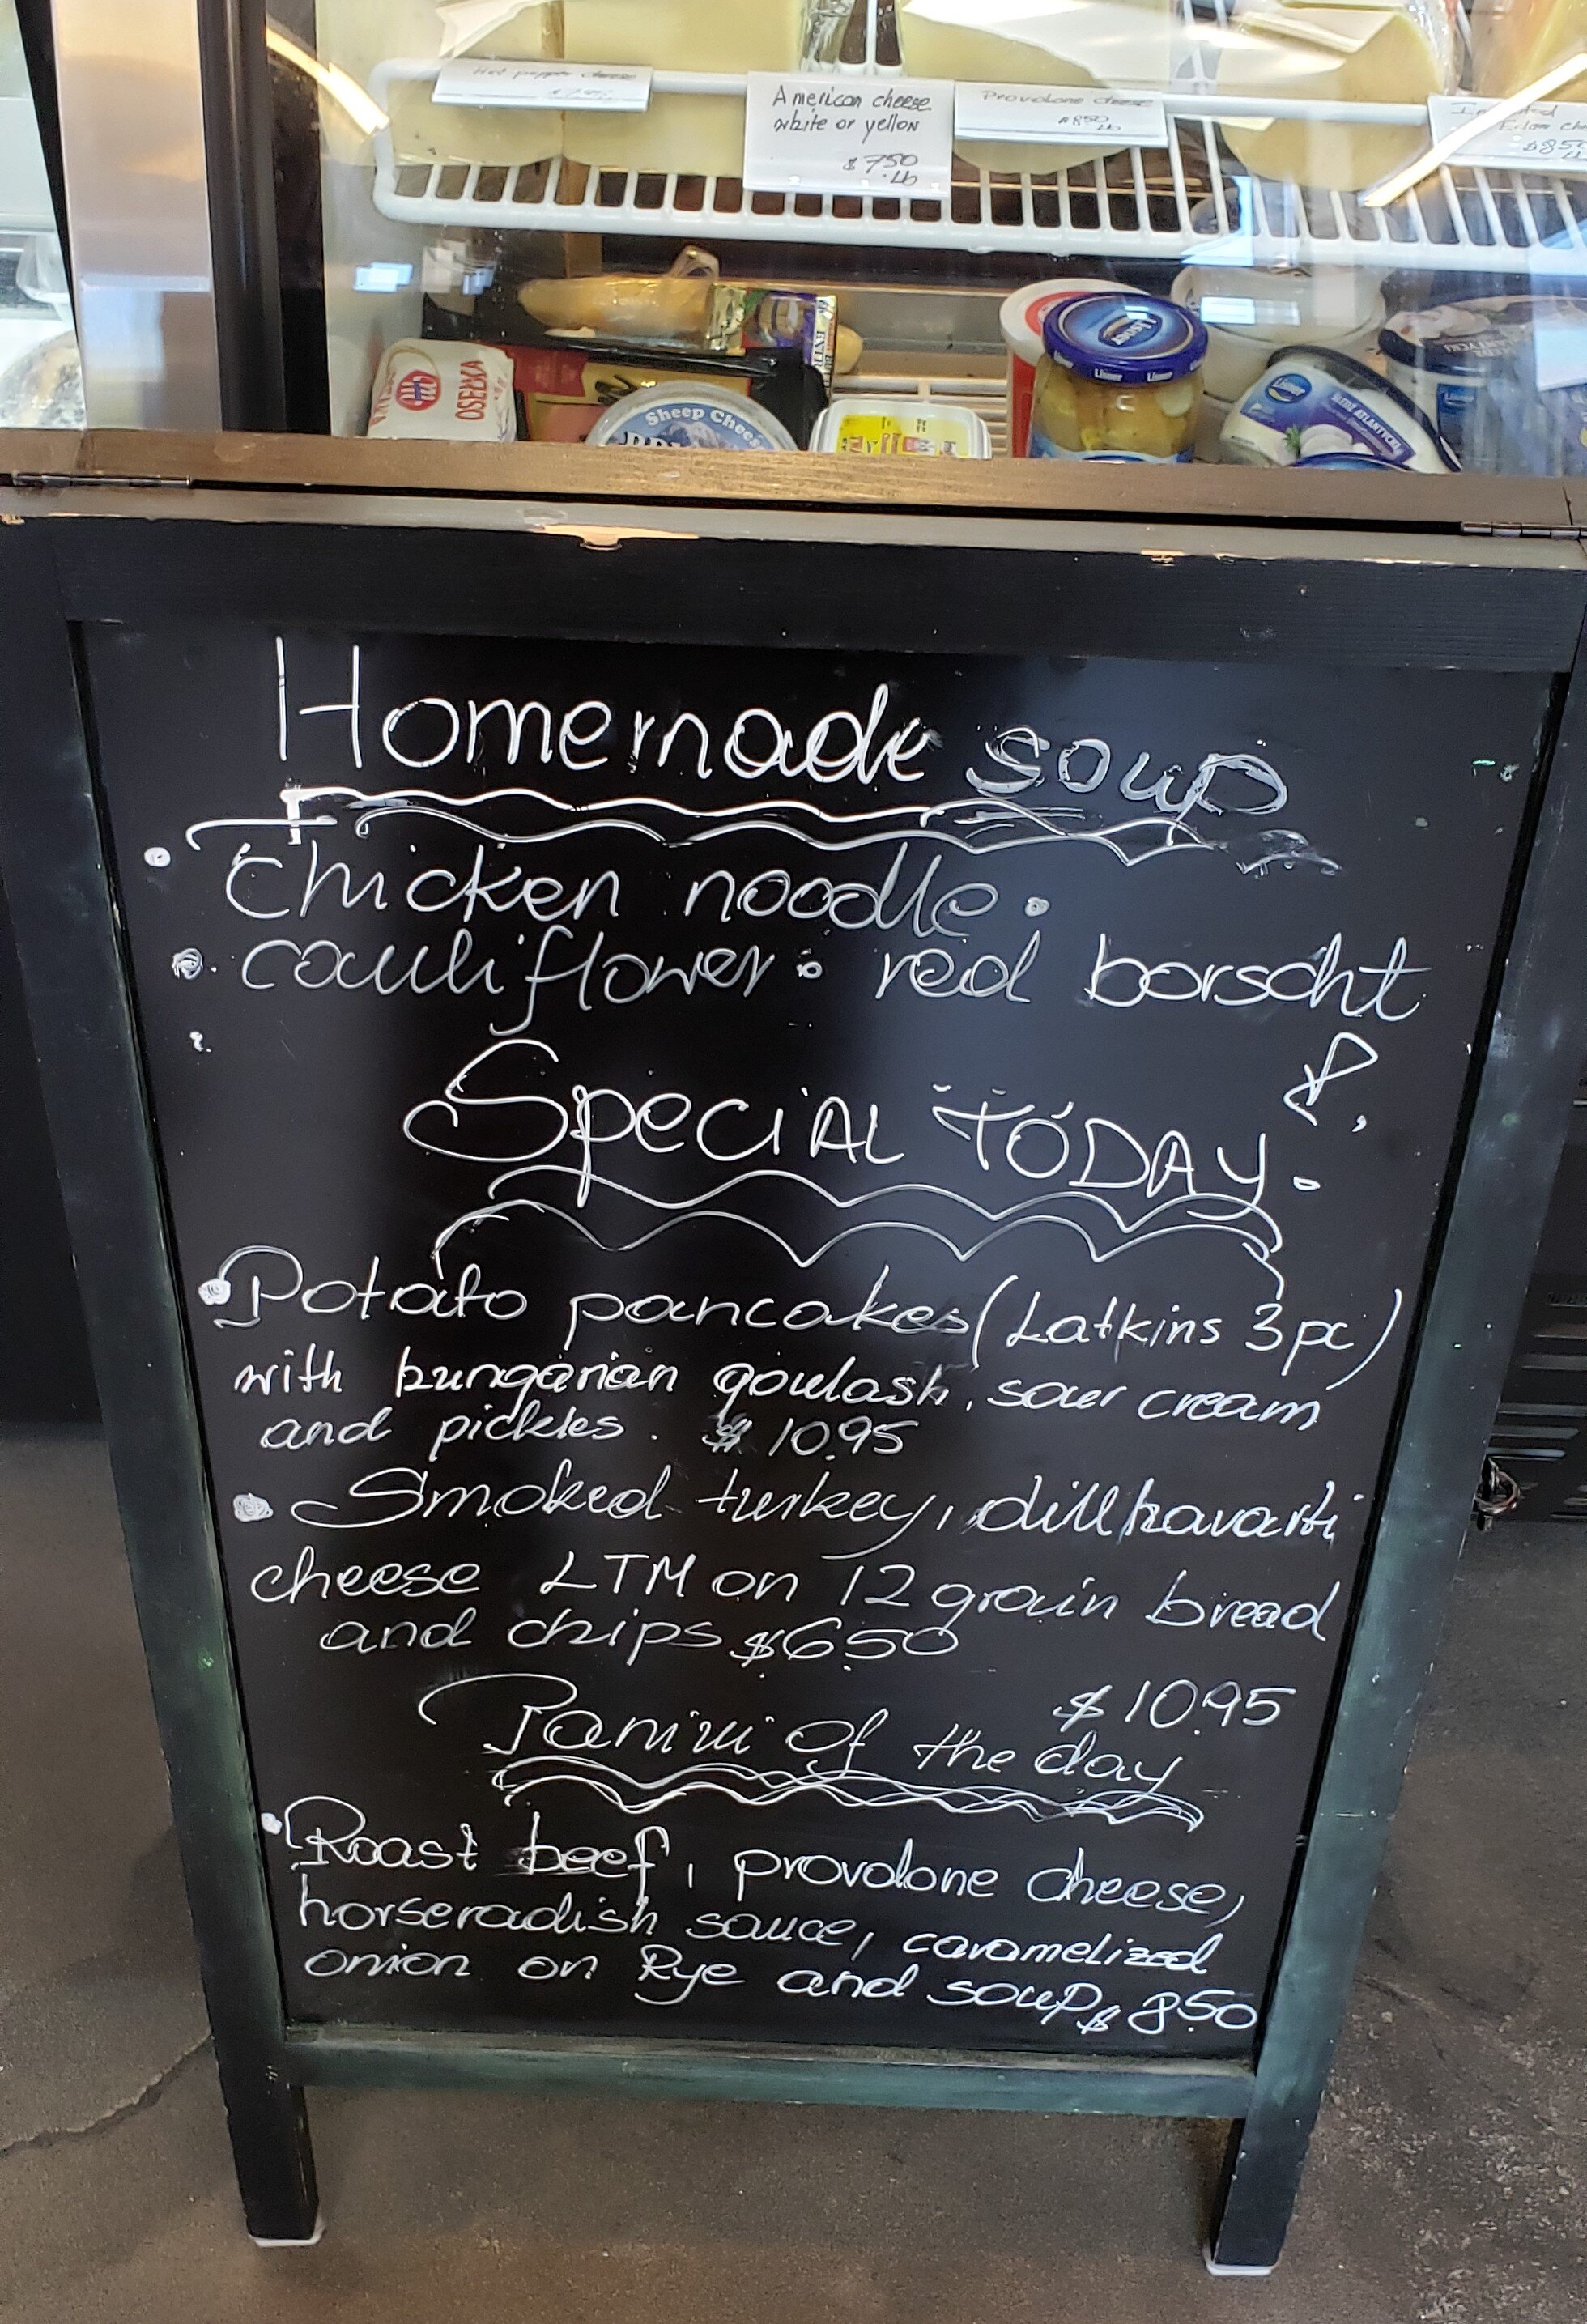 Hot pepper cheese
$7.95
American cheese
white or yellow
$7.50
Lb
Provolone cheese
$8.50
Lb
Edam
$8.50
OSEŁKA
Sheep Chees
Lisner
Lisner
Lisner
ŚLEDŹ ATLANTYCKI
Homemade soup
• Chicken noodle •
• cauliflower • red borscht
Special TODAY.
• Potato pancakes (Latkins 3pc)
with hungarian goulash, sour cream
and pickles. $10.95
• Smoked turkey, dill havarti
cheese LTM on 12 grain bread
and chips $6.50
$10.95
Panini of the day
• Roast beef, provolone cheese,
horseradish sauce, caramelized
onion on Rye and soup $8.50